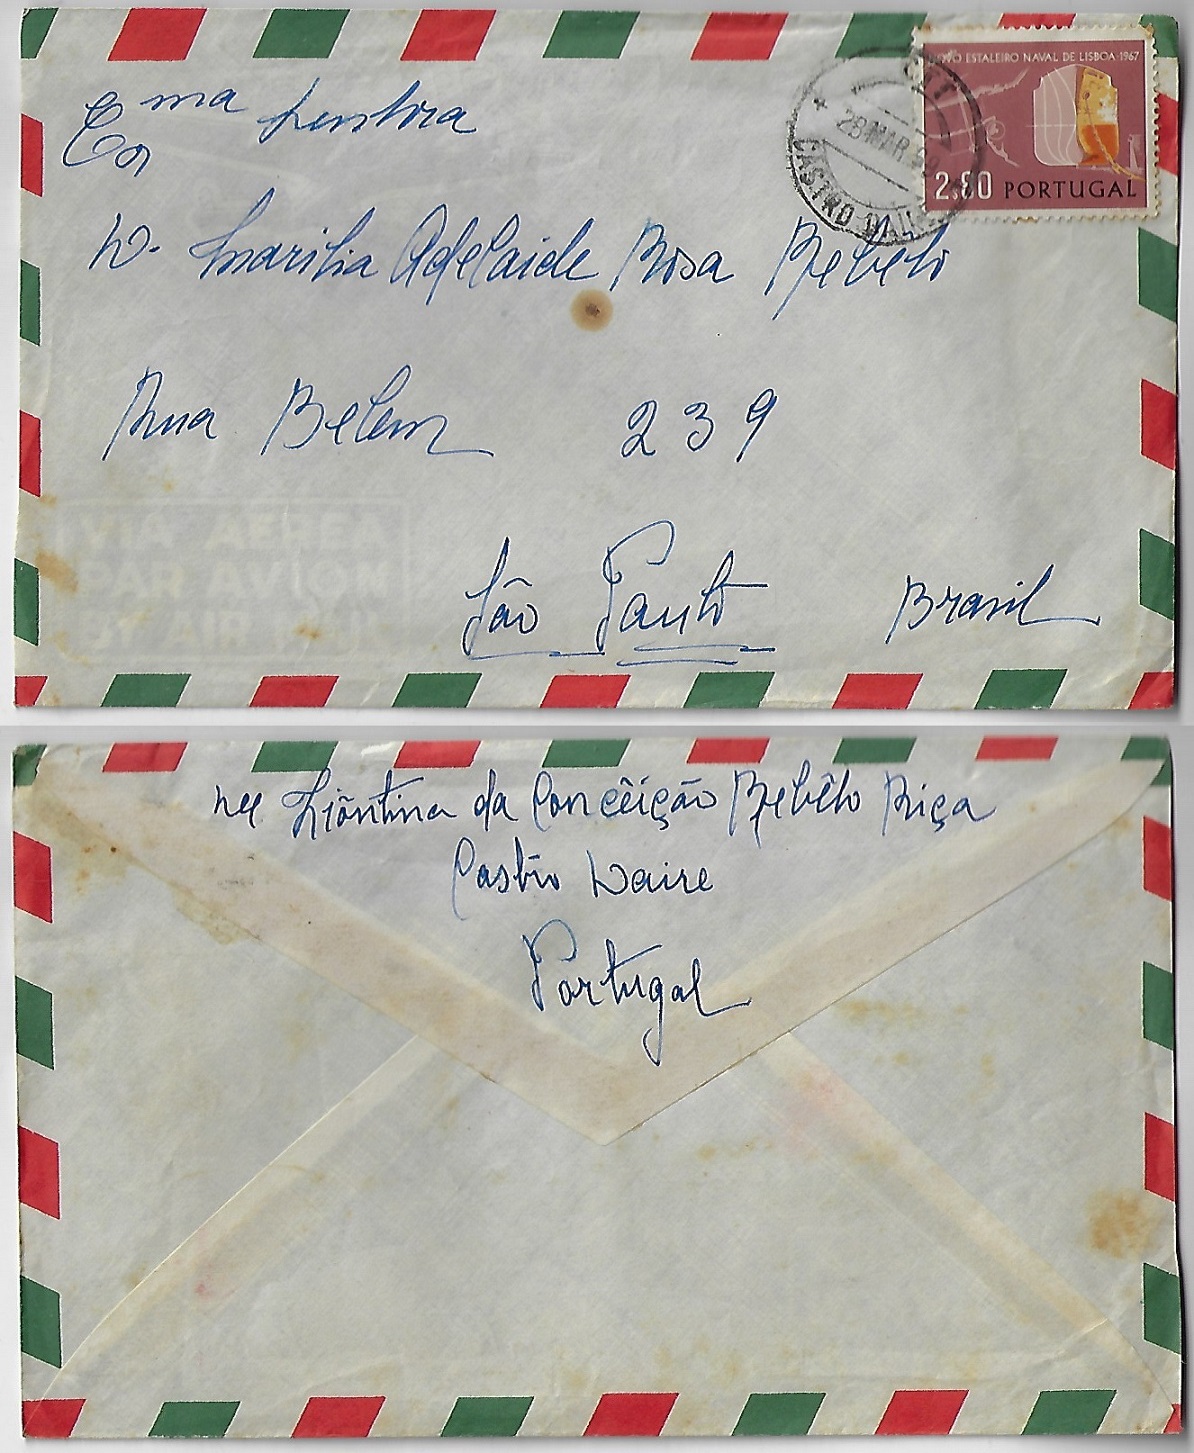 NOVO ESTALEIRO NAVAL DE LISBOA-1967
2.80 PORTUGAL
CTT
28 MAR. 69
CASTRO DAIRE
Exma Senhora
D. Marilia Adelaide Rosa Rebelo
Rua Belem 239
São Paulo Brasil
VIA AEREA
PAR AVION
BY AIR MAIL
Liôntina da Concêição Rebêlo Riça
Castro Daire
Portugal